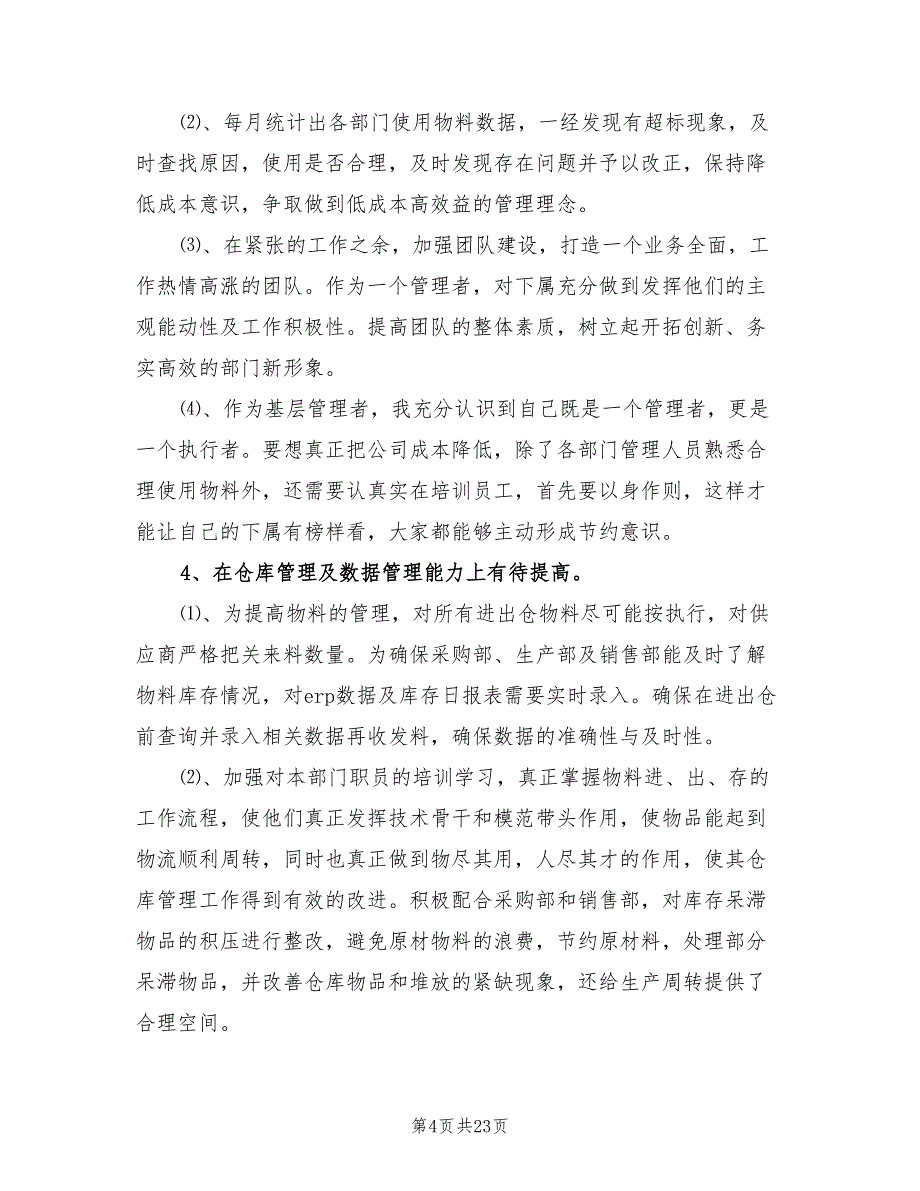 ⑵、每月统计出各部门使用物料数据，一经发现有超标现象，及
时查找原因，使用是否合理，及时发现存在问题并予以改正，保持降
低成本意识，争取做到低成本高效益的管理理念。
⑶、在紧张的工作之余，加强团队建设，打造一个业务全面，工
作热情高涨的团队。作为一个管理者，对下属充分做到发挥他们的主
观能动性及工作积极性。提高团队的整体素质，树立起开拓创新、务
实高效的部门新形象。
⑷、作为基层管理者，我充分认识到自己既是一个管理者，更是
一个执行者。要想真正把公司成本降低，除了各部门管理人员熟悉合
理使用物料外，还需要认真实在培训员工，首先要以身作则，这样才
能让自己的下属有榜样看，大家都能够主动形成节约意识。
4、在仓库管理及数据管理能力上有待提高。
⑴、为提高物料的管理，对所有进出仓物料尽可能按执行，对供
应商严格把关来料数量。为确保采购部、生产部及销售部能及时了解
物料库存情况，对erp数据及库存日报表需要实时录入。确保在进出仓
前查询并录入相关数据再收发料，确保数据的准确性与及时性。
⑵、加强对本部门职员的培训学习，真正掌握物料进、出、存的
工作流程，使他们真正发挥技术骨干和模范带头作用，使物品能起到
物流顺利周转，同时也真正做到物尽其用，人尽其才的作用，使其仓
库管理工作得到有效的改进。积极配合采购部和销售部，对库存呆滞
物品的积压进行整改，避免原材物料的浪费，节约原材料，处理部分
呆滞物品，并改善仓库物品和堆放的紧缺现象，还给生产周转提供了
合理空间。
第4页共23页